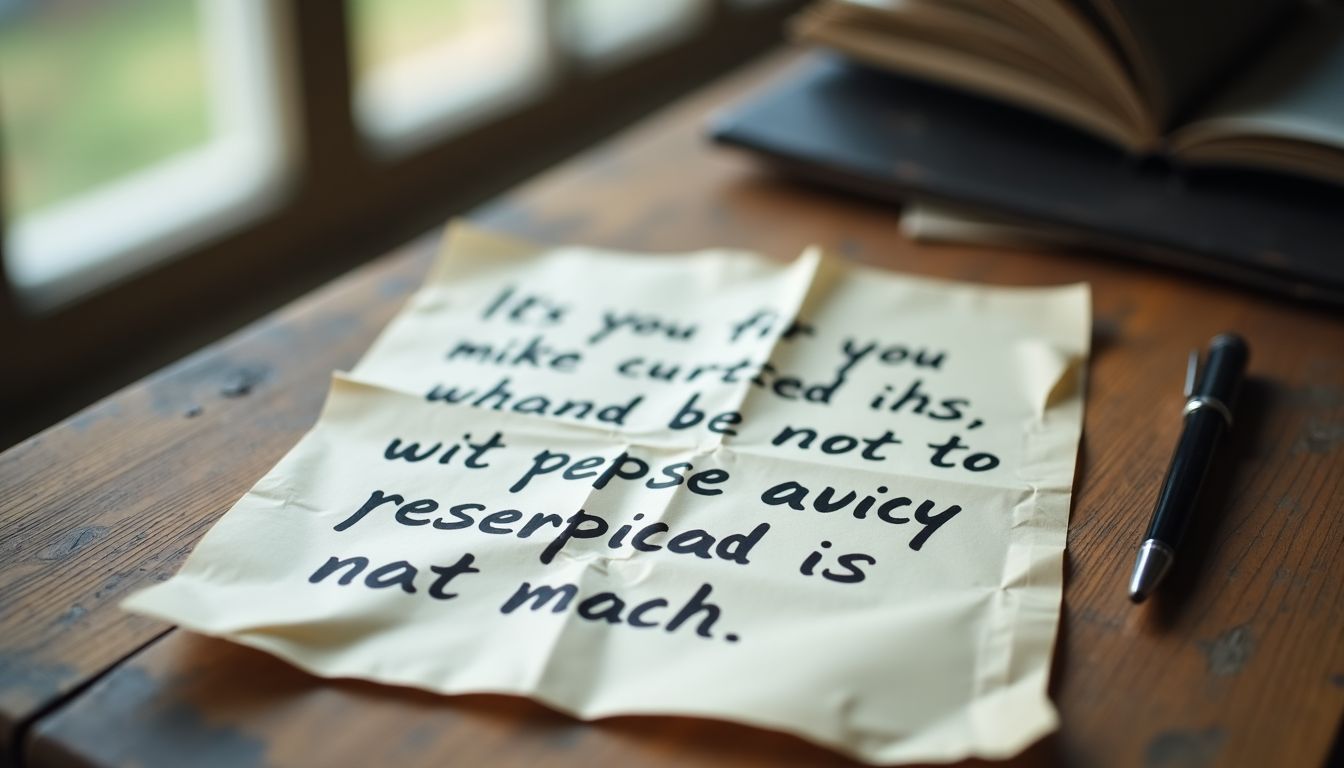 It's you fir you
mike curteed ihs,
whand be not to
wit pepse auicy
reserpicad is
nat mach.